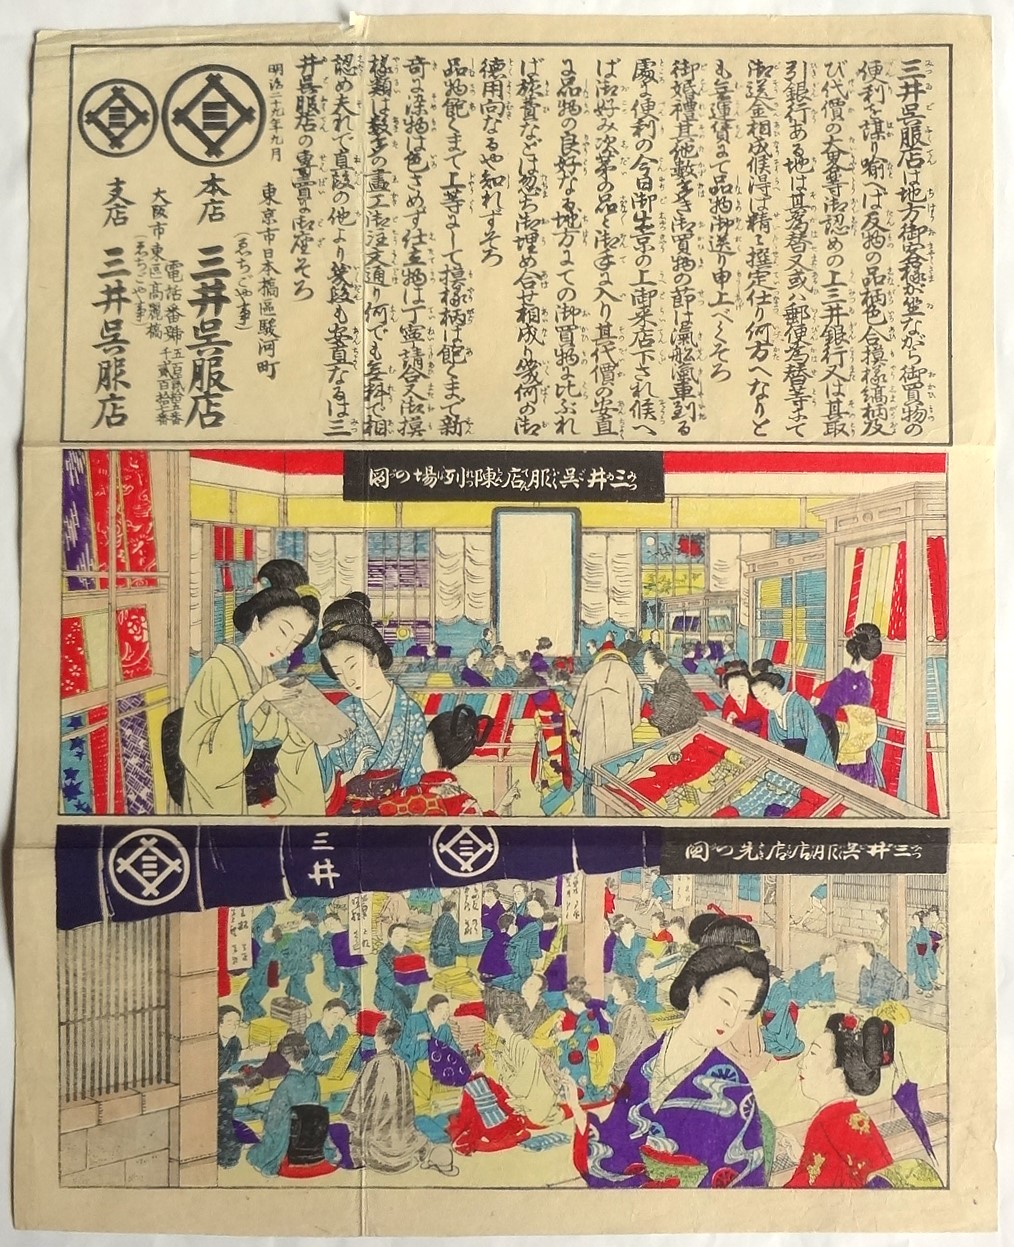 三井呉服店は地方御客様が坐ながら御買物の
便利を謀り喩へば反物の品柄色合摸様縞柄及
び代價の大畧等御認めの上三井銀行又は其取
引銀行ある地は其為替又或ハ郵便為替等にて
御送金相成候得は精々撰定仕り何方へなりと
も無運賃にて品物御送り申上べくそろ
御婚禮其他數多き御買物の節は滊舩滊車到る
處に便利の今日御出京の上御来店下され候へ
ば御好み次第の品と御手に入り其代價の安直
に品物の良好なる地方にての御買物に比ぶれ
ば旅費などは忽ち御埋め合せ相成り幾何の御
徳用向なるや知れずそろ
品物飽くまで上等にして摸様柄は飽くまで新
奇に染物は色さめず仕立物は丁寧請合又御摸
様類は數多の畫工御注文通り何でも無料で相
認め夫れで直段の他より幾段も安直なるは三
井呉服店の專賣に御座そろ
明治二十九年九月
東京市日本橋區駿河町
(ゑちごや事)
本店 三井呉服店
電話番號 五百貳拾五番 千貳百拾七番
大阪市東區高麗橋
(ゑちごや事)
支店 三井呉服店
三井呉服店陳列場の圖
三井呉服店店先の圖
三井